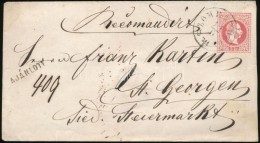 Recomandirt
Herrn Franz Kartin
AJÁNLOTT
409
St. Georgen
Süd. Steiermark